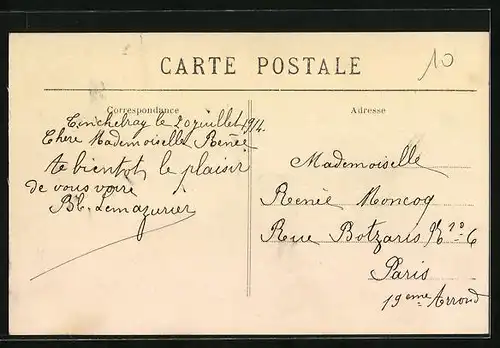 10
CARTE POSTALE
Correspondance
Tinchebray le 20 juillet 1914.
Chere Mademoiselle Renée
le plaisir
de vous voire
Lemazurier
Adresse
Mademoiselle
Renée Moncoq
Rue Botzaris Nº 6
Paris
19eme Arrond